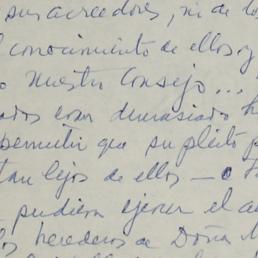 sus acreedores, ni de lo
conocimiento de ellos y
Nuestro Consejo...
ados con demasiado h
permitir que su pleito p
tan lejos de ellos —
pudiera ejercer el a
los herederos de Doña M